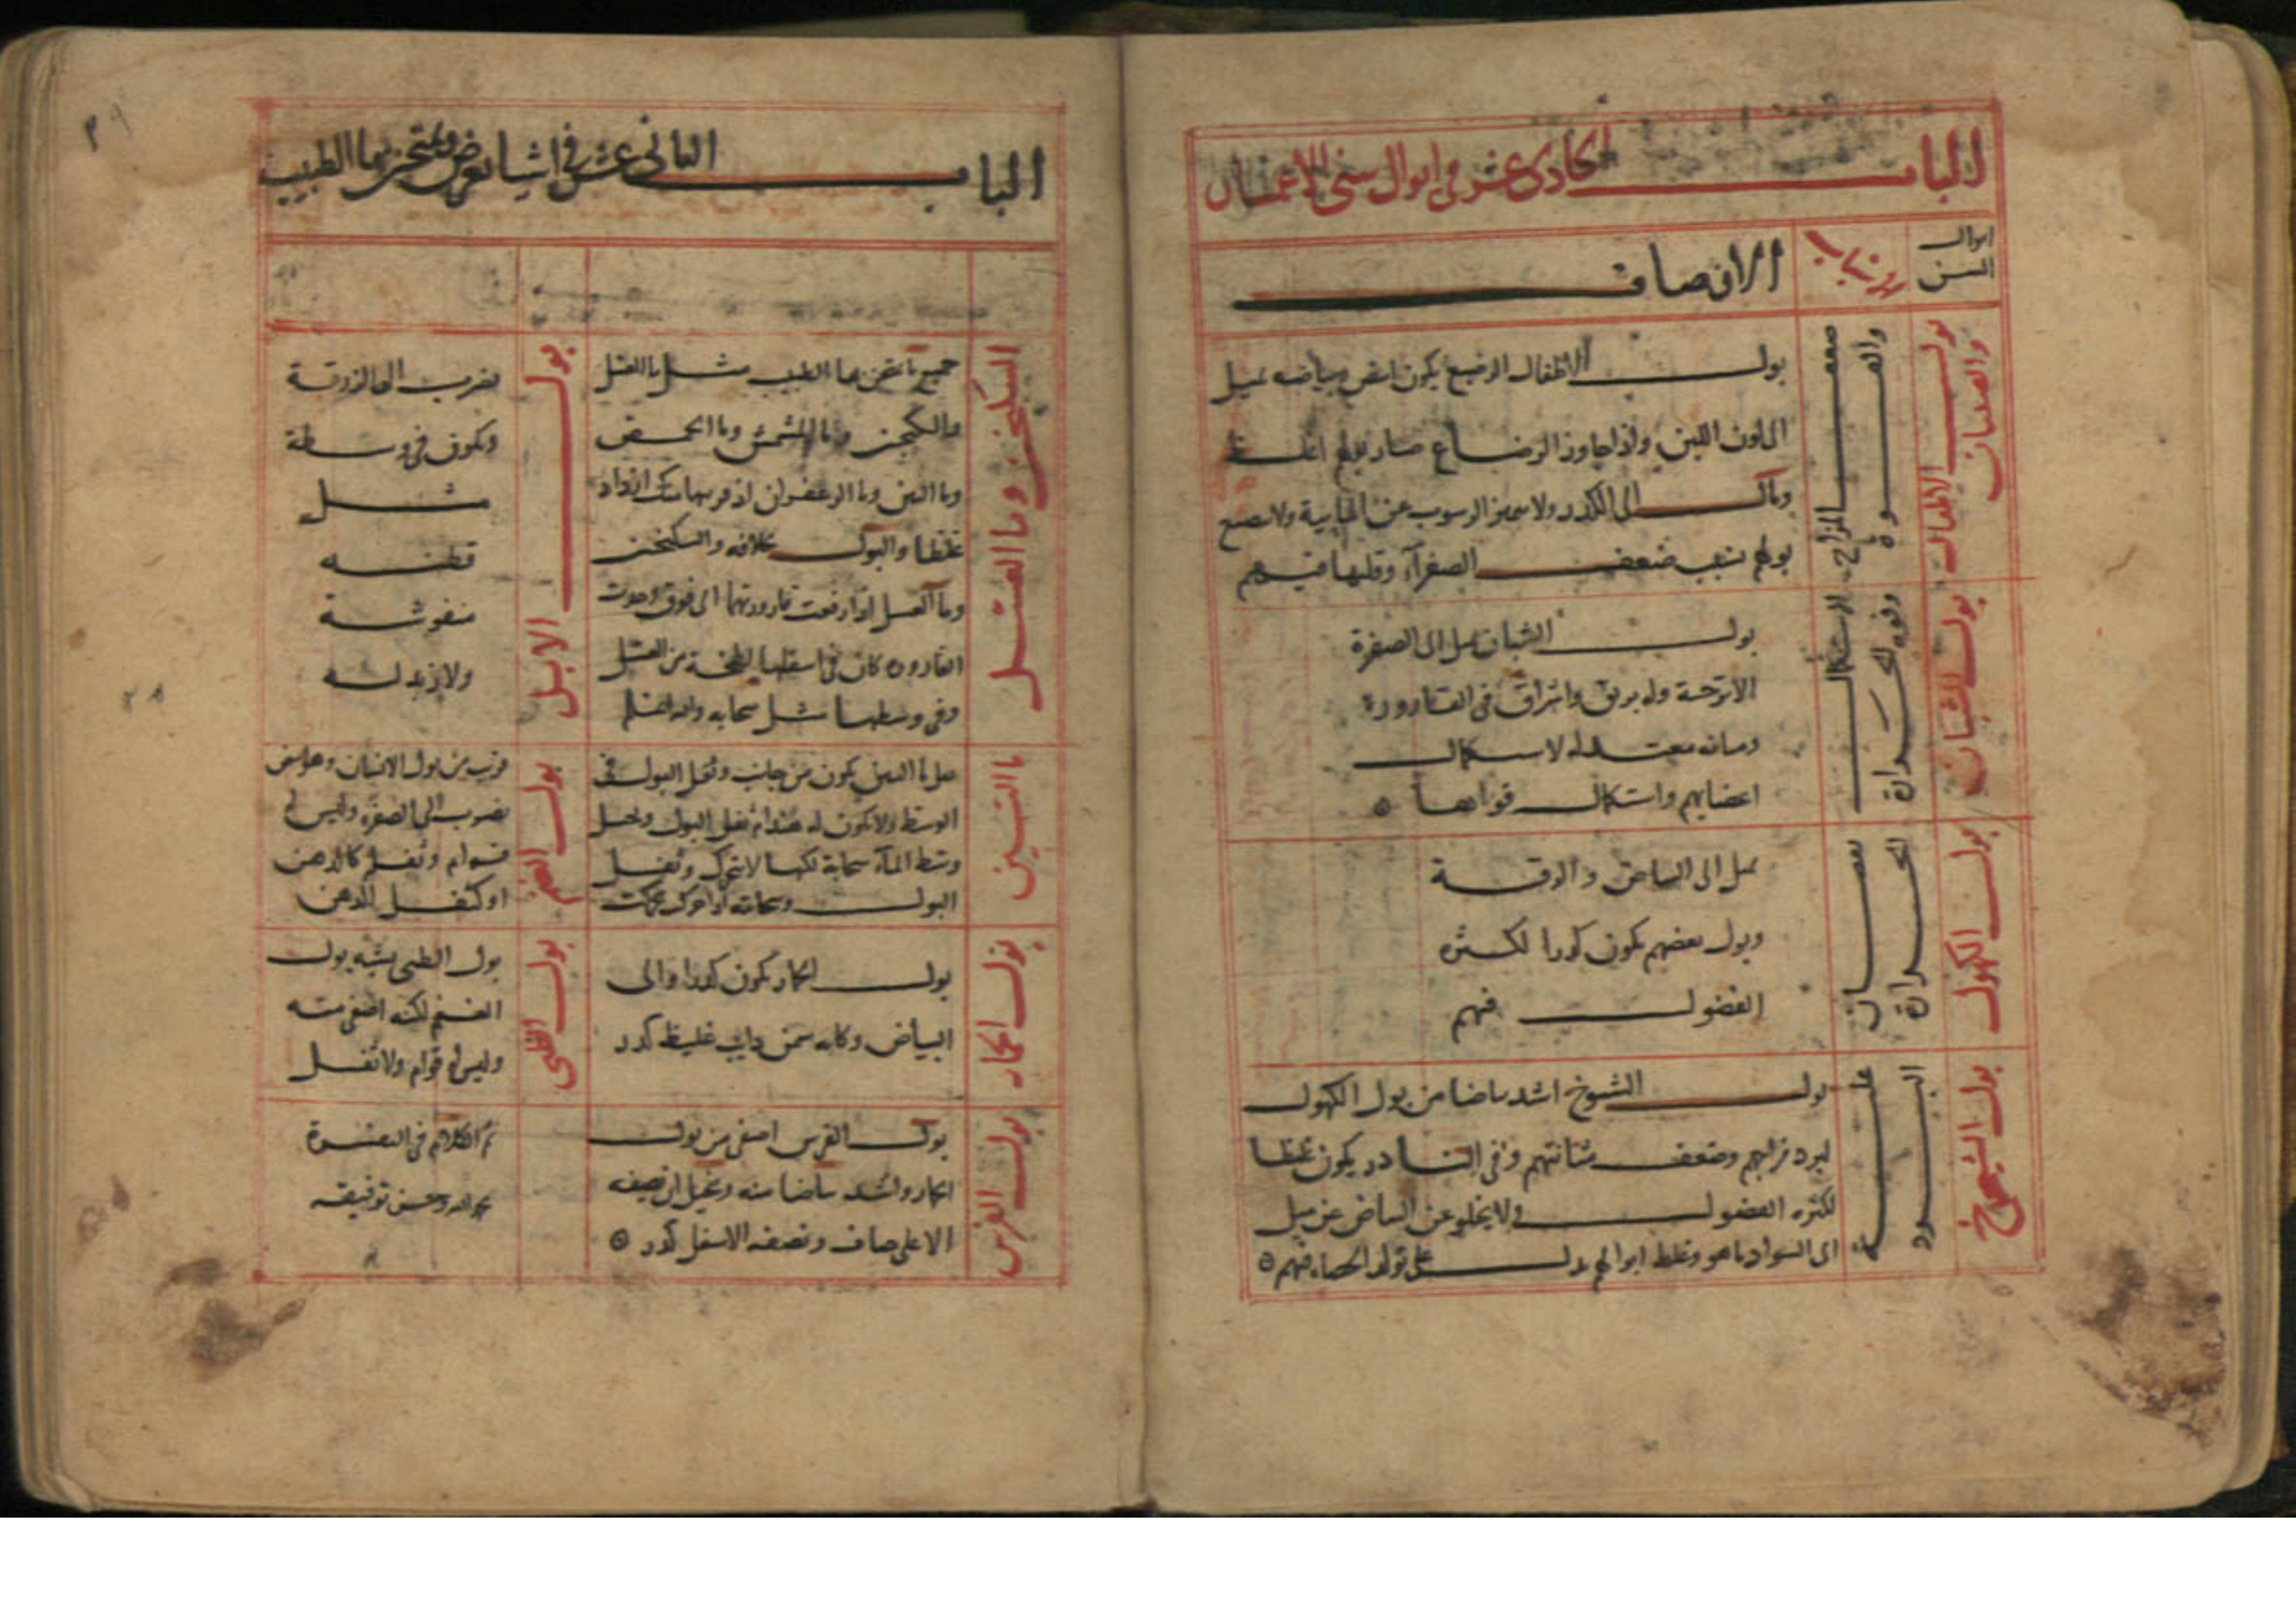 الباب الحادي عشر في ابوال سني الاعمال
ابوال السن
الاوصاف
بول الاطفال والصبيان
ضعف المزاج والقوة
بول الاطفال الرضيع يكون ابيض وبياضه يميل
الى لون اللبن واذا جاوز الرضاع صار بولهم اغلظ
ومال الى الكدر ولا يتميز الرسوب عن المايية ولا يصبغ
بولهم بسبب ضعف الصفرآء وقلتها فيهم
بول الشبان
الاستكمال وقوة الحرارة
بول الشبان يميل الى الصفرة
الاترجية وله بريق واشراق في القارورة
معتدلة لاستكمال
اعضايهم واستكمال قواهما
بول الكهول
نقصان الحرارة
يميل الى البياض والرقة
وبول بعضهم يكون كدرا لكثرة
الفضول فيهم
بول الشيوخ
غلبة البرد
بول الشيوخ اشد بياضا من بول الكهول
لبرد مزاجهم وضعف مثانتهم وفي النادر يكون غليظا
لكثرة الفضول ولا يخلو عن البياض عن ميل
الى السواد ما هو وغلظ ابوالهم يدل على تولد الحصاة فيهم
٢٩
الباب الثاني عشر في اشيا تعرض ويمتحن بها الطبيب
السكنجبين وما العسل
جميع ما يمتحن بها الطبيب مثل ما العسل
والسكنجبين وما المشمش وما الحمص
وما التين وما الزعفران اذا قربتها منك ازداد
غلظا والبول بخلافه والسكنجبين
وما آلعسل اذا رفعت قارورتهما الى فوق وجدت
القارورة كان في اسفلها لطخة من العسل
وفي وسطها مثل سحابه والله اعلم
بول الابل
يضرب الى الزرقة
ويكون في وسطه
مثل
قطنه
منفوشة
ولا زبد له
ما التين
ثفل ما التين يكون من جانب وثفل البول في
الوسط ولا يكون له هندام ثفل البول
وسط المآء سحابة لكنها لا تتحرك وثفل
البول وسحابته اذا حركته تحركت
بول الغنم
قريب من بول الانسان وهو ابيض
يضرب الى الصفرة وليس له
قوام وثفله كالدهن
او كثفل الدهن
بول الحمار
بول الحمار يكون كدرا والى
البياض وكانه سمن دايب غليظ كدر
بول الظبي
بول الظبي يشبه بول
الغنم لكنه اصفى منه
وليس له قوام ولا ثفل
بول الفرس
بول الفرس اصفى من بول
الحمار واشد بياضا منه ويخيل ان نصفه
الاعلى صاف ونصفه الاسفل كدر
تم الكلام في التفسرة
بحمد الله وحسن توفيقه